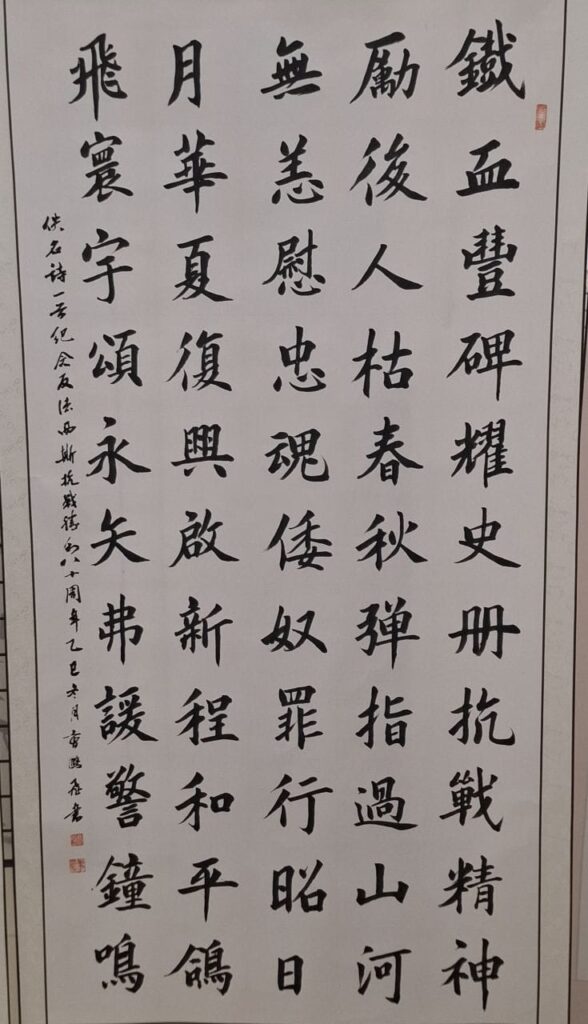 鐵血豐碑耀史册抗戰精神
勵後人枯春秋彈指過山河
無恙慰忠魂倭奴罪行昭日
月華夏復興啟新程和平鴿
飛寰宇頌永矢弗諼警鐘鳴
佚名詩一首紀念反法西斯抗戰勝利八十周年乙巳冬月